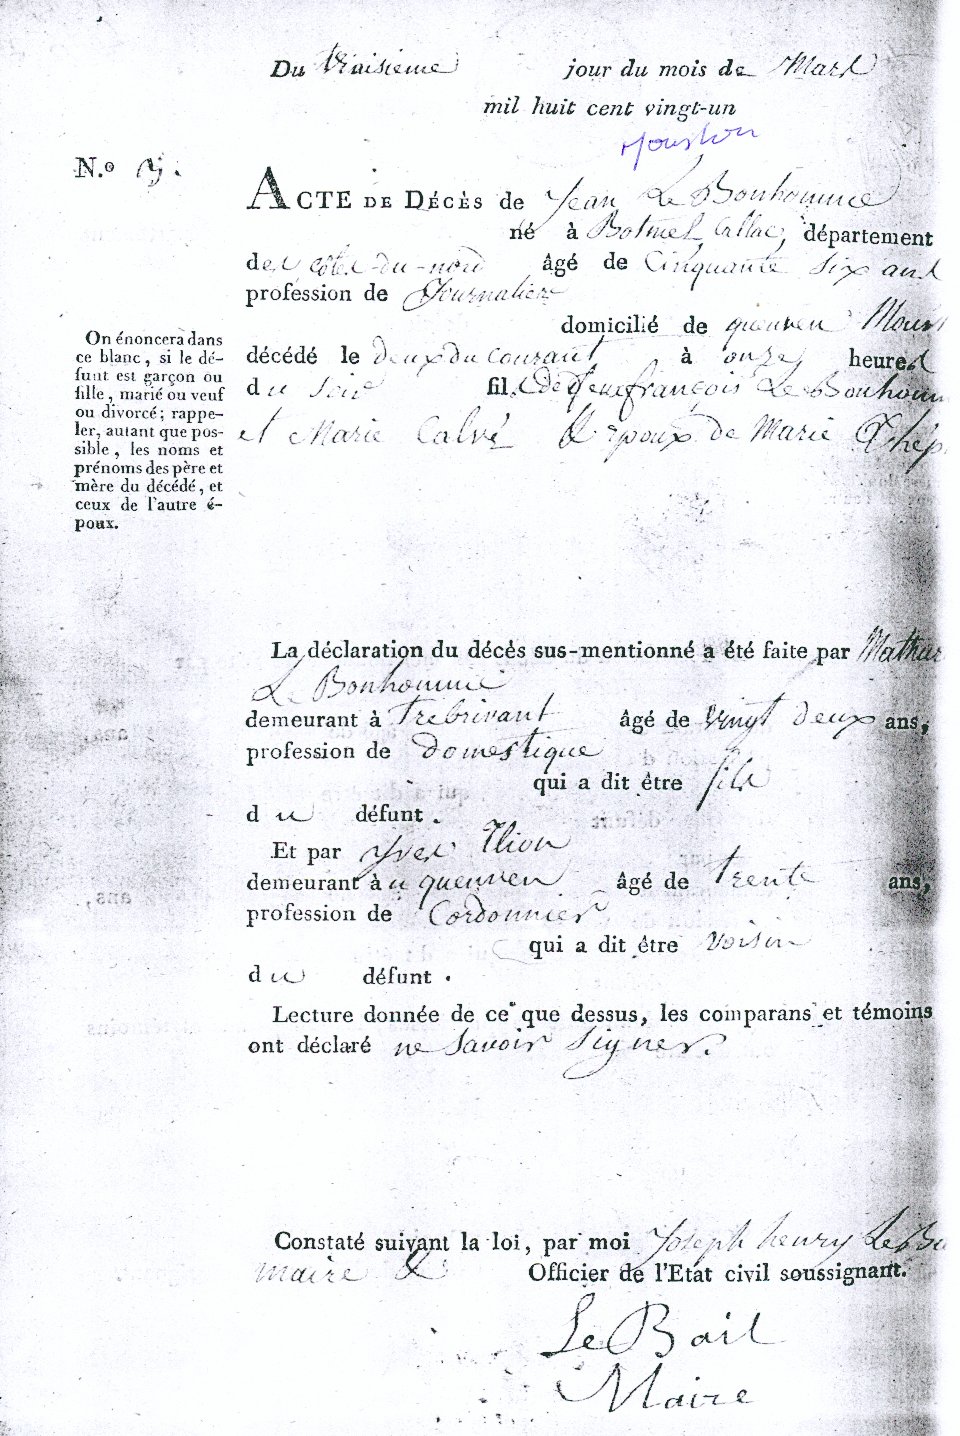 Du troisieme jour du mois de Mars
mil huit cent vingt-un
Moustoir
N.º 5.
ACTE DE DÉCÈS de Jean Le Bonhomme
né à Botmel Callac, département
des côtes-du-nord âgé de Cinquante Six ans
profession de Journalier
domicilié de queuven Moust
décédé le deux du courant à onze heures
du Soir fils de Jean françois Le Bonhom
et Marie Calvé & Epoux de Marie
On énoncera dans
ce blanc, si le dé-
funt est garçon ou
fille, marié ou veuf
ou divorcé; rappe-
ler, autant que pos-
sible, les noms et
prénoms des père et
mère du décédé, et
ceux de l'autre é-
poux.
La déclaration du décès sus-mentionné a été faite par Mathur
Le Bonhomme
demeurant à Trebrivant âgé de vingt deux ans,
profession de domestique
qui a dit être fils
du défunt.
Et par Yves Iliou
demeurant à u queuven âgé de trente ans,
profession de Cordonnier
qui a dit être voisin
du défunt.
Lecture donnée de ce que dessus, les comparans et témoins
ont déclaré ne Savoir Signer.
Constaté suivant la loi, par moi Joseph henry Le Ba
maire & Officier de l'Etat civil soussignant.
Le Bail
Maire